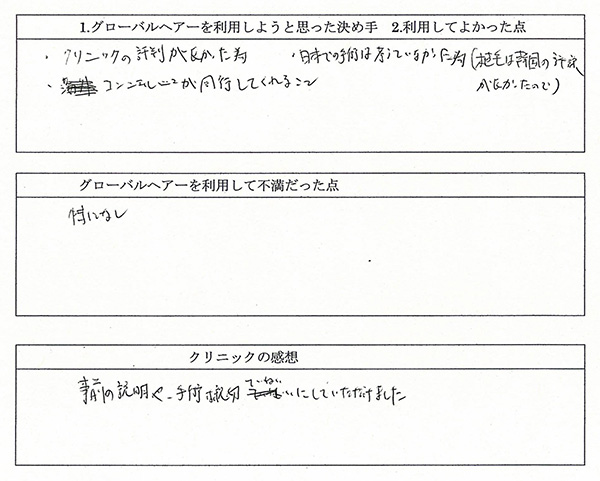 1.グローバルヘアーを利用しようと思った決め手 2.利用してよかった点
・クリニックの評判が良かった為 ・日本での手術は考えていなかった為(植毛は韓国の評判
・コンシェルジュが同行してくれること が良かったので)
グローバルヘアーを利用して不満だった点
特になし
クリニックの感想
事前の説明や、手術は
ていねい
にしていただけました